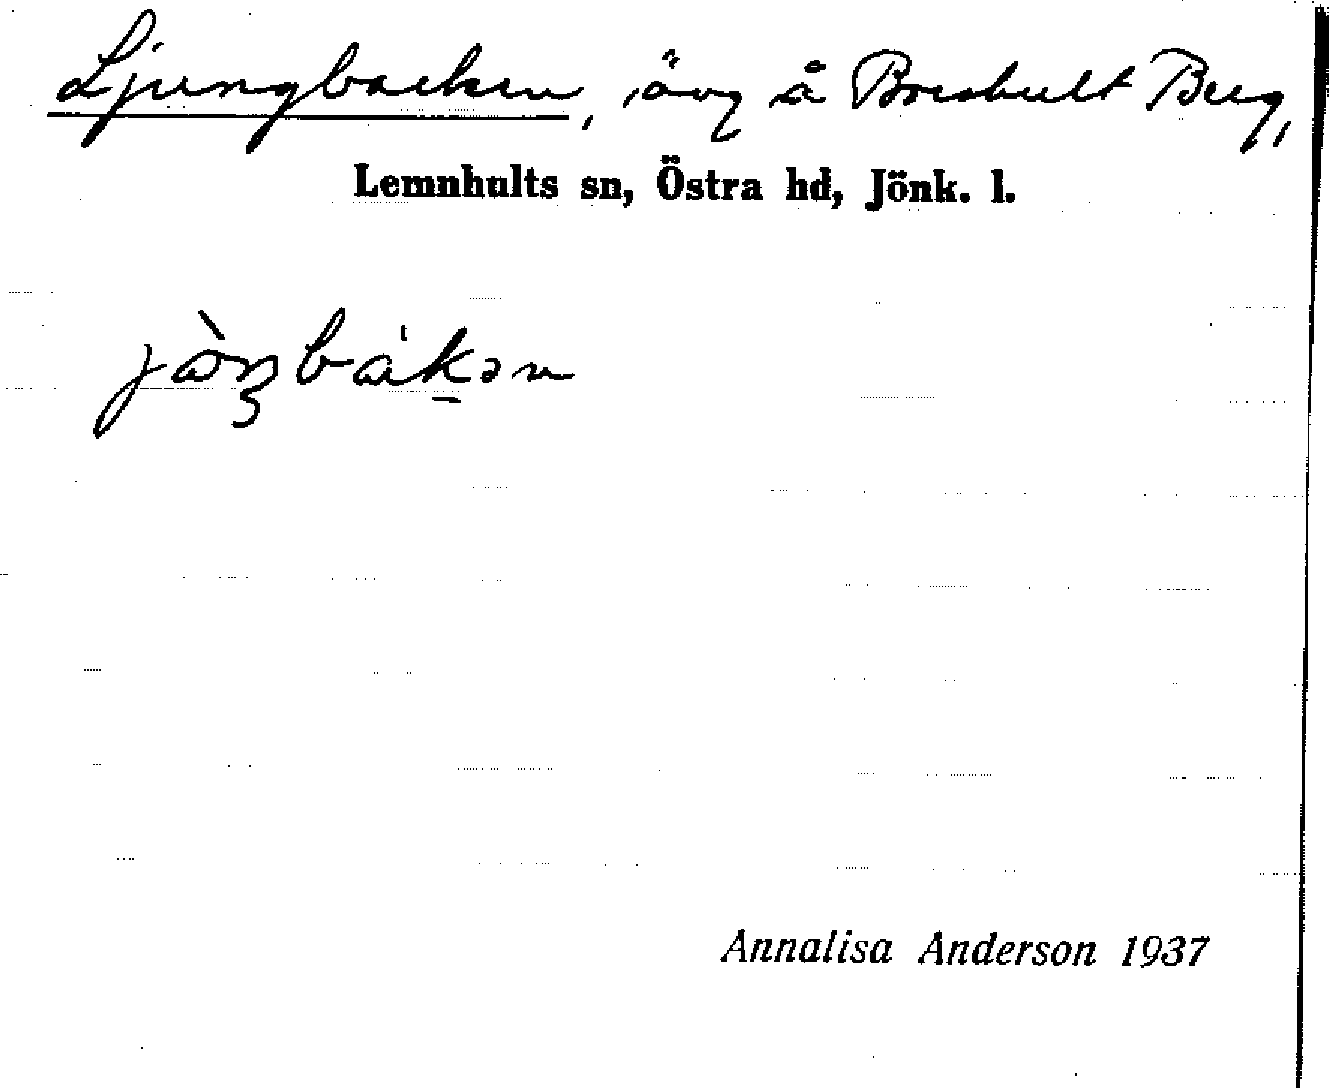 Ljungbacken, ävg å Breshult Berg,
Lemnhults sn, Östra hd, Jönk. l.
Annalisa Anderson 1937